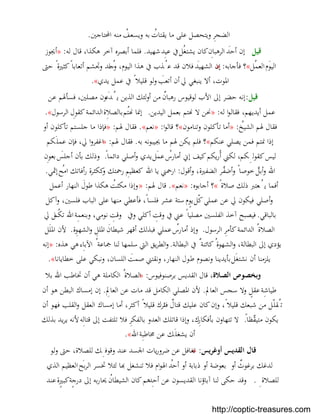 الضجر ويتحصل على ما يقتات به ويسعف منه المحتاجين.
قيل إن أحد الرهبان كان يشتغل في عيد شهيد. فلما أبصره آخر هكذا، قال له: «أيجوز
اليوم العمل»؟ فأجابه: إن الشهيد فلان قد عُذب في هذا اليوم، وجُلد وتجشم أتعاباً كثيرة حتى
الموت، ألا ينبغي لي أن أتعب ولو قليلاً في عمل يدي».
قيل: إنه حضر إلى الأب لوقيوس رهبانٌ من أولئك الذين يُدعون مصلين، فسألهم عن
عمل أيديهم، فقالوا له: «نحن لا نهتم بعمل اليدين. إنما نهتم بالصلاة الدائمة كقول الرسول».
فقال لهم الشيخ: «أما تأكلون وتنامون»؟ قالوا: «نعم». فقال لهم: «فإذا ما جلستم تأكلون أو
إذا نمتم فمن يصلي عنكم»؟ فلم يكن لهم ما يجيبونه به. فقال لهم: «اغفروا لي، فإن عملكم
ليس كقولكم، لكني أريكم كيف إني أمارس عمل يدي وأصلي دائماً. وذلك بأن أجلس بعون
الله وأبل خوصاً وأضفر الضفيرة، وأقول: ارحمني يا الله كعظيم رحمتك وككثرة رأفاتك امحُ إثمي.
أفما يُعتبر ذلك صلاةً »؟ أجابوه: «نعم». قال لهم: «وإذا مكثتُ هكذا طول النهار أعمل
وأصلي فيكون لي عن عملي كل يوم ستة عشر فلساً، فأعطي منها على الباب فلسين، وآكل
بالباقي. فيصبح آخذ الفلسين مصلياً عني في وقت أكلي وفي وقت نومي، وبنعمة الله تكمل لي
الصلاة الدائمة كأمر الرسول. وإذ أمارس عملي فبذلك أقهر شيطان الملل والشهوة. لأن الملل
يؤدي إلى البطالة، والشهوة كائنة في البطالة. والطريق التي سلمها لنا جماعة الآباء هي هذه: «إنه
يلزمنا أن نشتغل بأيدينا ونصوم طول النهار، ونقتني صمت اللسان، ونبكي على خطايانا».
وبخصوص الصلاة، قال القديس برصنوفيوس: «الصلاة الكاملة هي أن تخاطب الله بلا
طياشةِ عقلٍ ولا سجس العالم. لأن المصلي الكامل قد مات عن العالم. إن إمساك البطن هو أن
تُقلل من شبعك قليلاً، وإن كان عليك قتالٌ فاترك قليلاً أكثر، أما إمساك العقل والقلب فهو أن
يكون متيقظاً. لا تتهاون بأفكارك، وإذا قاتلك العدو بالفكر فلا تلتفت إلى قتاله لأنه يريد بذلك
أن يشغلك عن مخاطبة الله».
قال القديس أوغريس: تغافل عن ضروريات الجسد عند وقوفك للصلاة، حتى ولو
لدغك برغوثٌ أو بعوضة أو ذبابة أو أحد الهوام فلا تنشغل بها لئلا تخسر الربح العظيم الذي
للصلاة . وقد حكى لنا آباؤنا القديسون عن أحدهم كان الشيطان يحاربه إلى درجةٍ كبيرةٍ عند
http://coptic-treasures.com